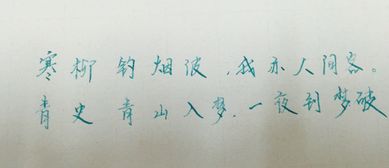 寒柳钓烟波,我亦人间客。
青史青山入梦,一夜到梦破